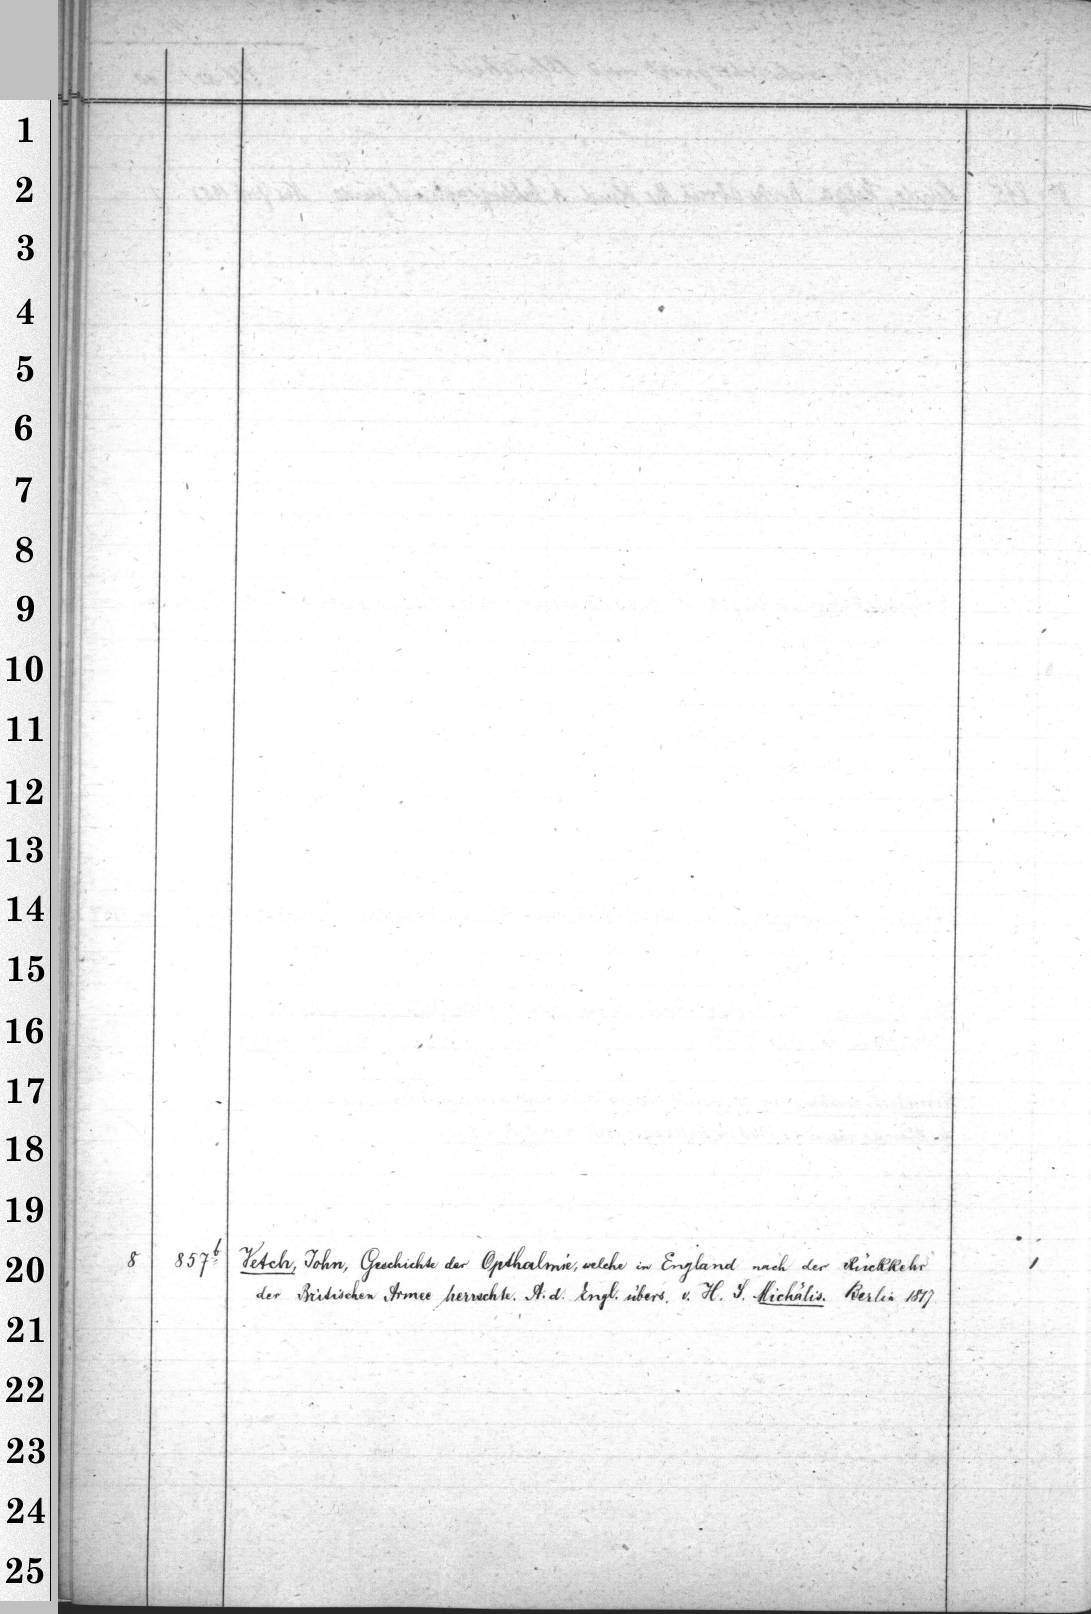 1
2
3
4
5
6
7
8
9
10
11
12
13
14
15
16
17
18
19
20
21
22
23
24
25
8 857b Vetch, John, Geschichte der Opthalmie, welche in England nach der Rückkehr 1
der Britischen Armee herrschte. A. d. Engl. übers. v. H. S. Michälis. Berlin 1817